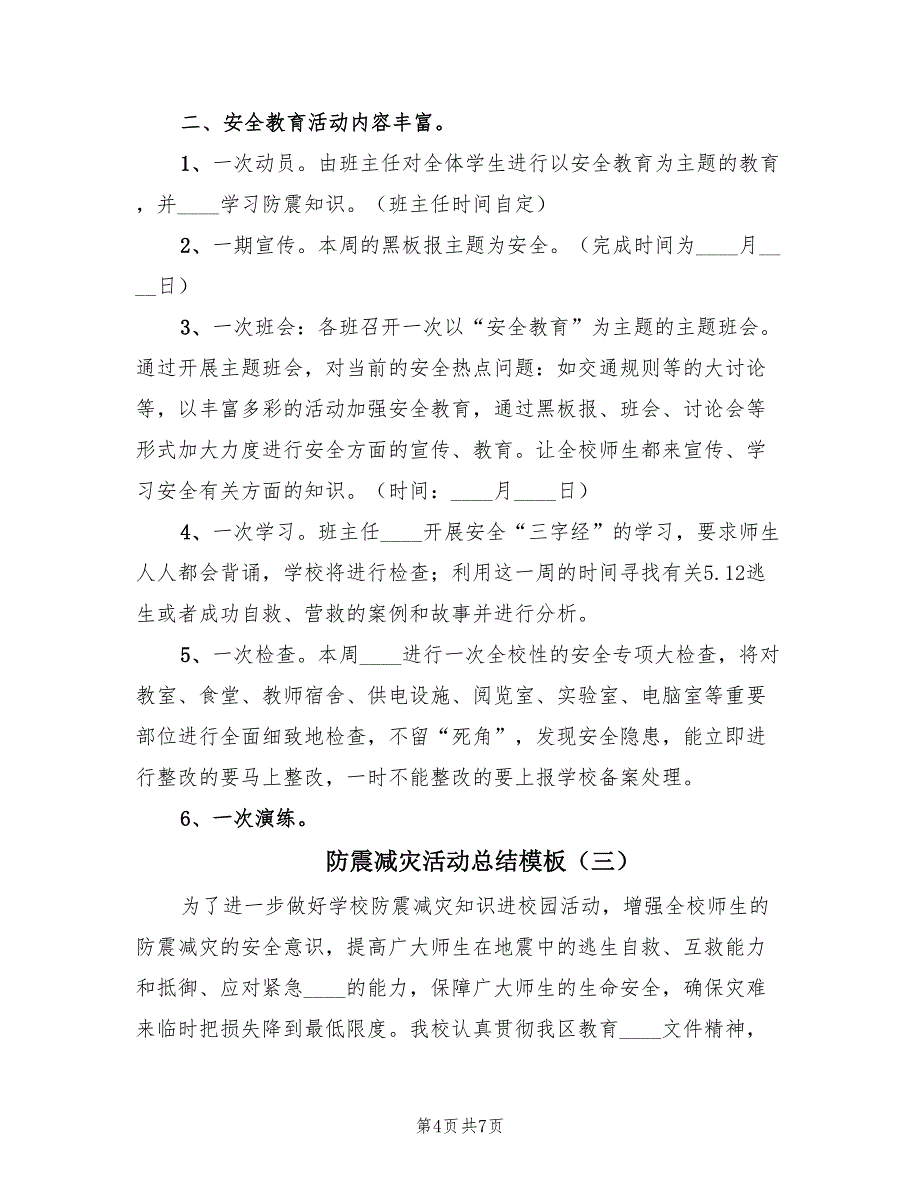 二、安全教育活动内容丰富。
1、一次动员。由班主任对全体学生进行以安全教育为主题的教育
，并____学习防震知识。（班主任时间自定）
2、一期宣传。本周的黑板报主题为安全。（完成时间为____月__
__日）
3、一次班会：各班召开一次以“安全教育”为主题的主题班会。
通过开展主题班会，对当前的安全热点问题：如交通规则等的大讨论
等，以丰富多彩的活动加强安全教育，通过黑板报、班会、讨论会等
形式加大力度进行安全方面的宣传、教育。让全校师生都来宣传、学
习安全有关方面的知识。（时间：____月____日）
4、一次学习。班主任____开展安全“三字经”的学习，要求师生
人人都会背诵，学校将进行检查；利用这一周的时间寻找有关5.12逃
生或者成功自救、营救的案例和故事并进行分析。
5、一次检查。本周____进行一次全校性的安全专项大检查，将对
教室、食堂、教师宿舍、供电设施、阅览室、实验室、电脑室等重要
部位进行全面细致地检查，不留“死角”，发现安全隐患，能立即进
行整改的要马上整改，一时不能整改的要上报学校备案处理。
6、一次演练。
防震减灾活动总结模板（三）
为了进一步做好学校防震减灾知识进校园活动，增强全校师生的
防震减灾的安全意识，提高广大师生在地震中的逃生自救、互救能力
和抵御、应对紧急____的能力，保障广大师生的生命安全，确保灾难
来临时把损失降到最低限度。我校认真贯彻我区教育____文件精神，
第4页共7页